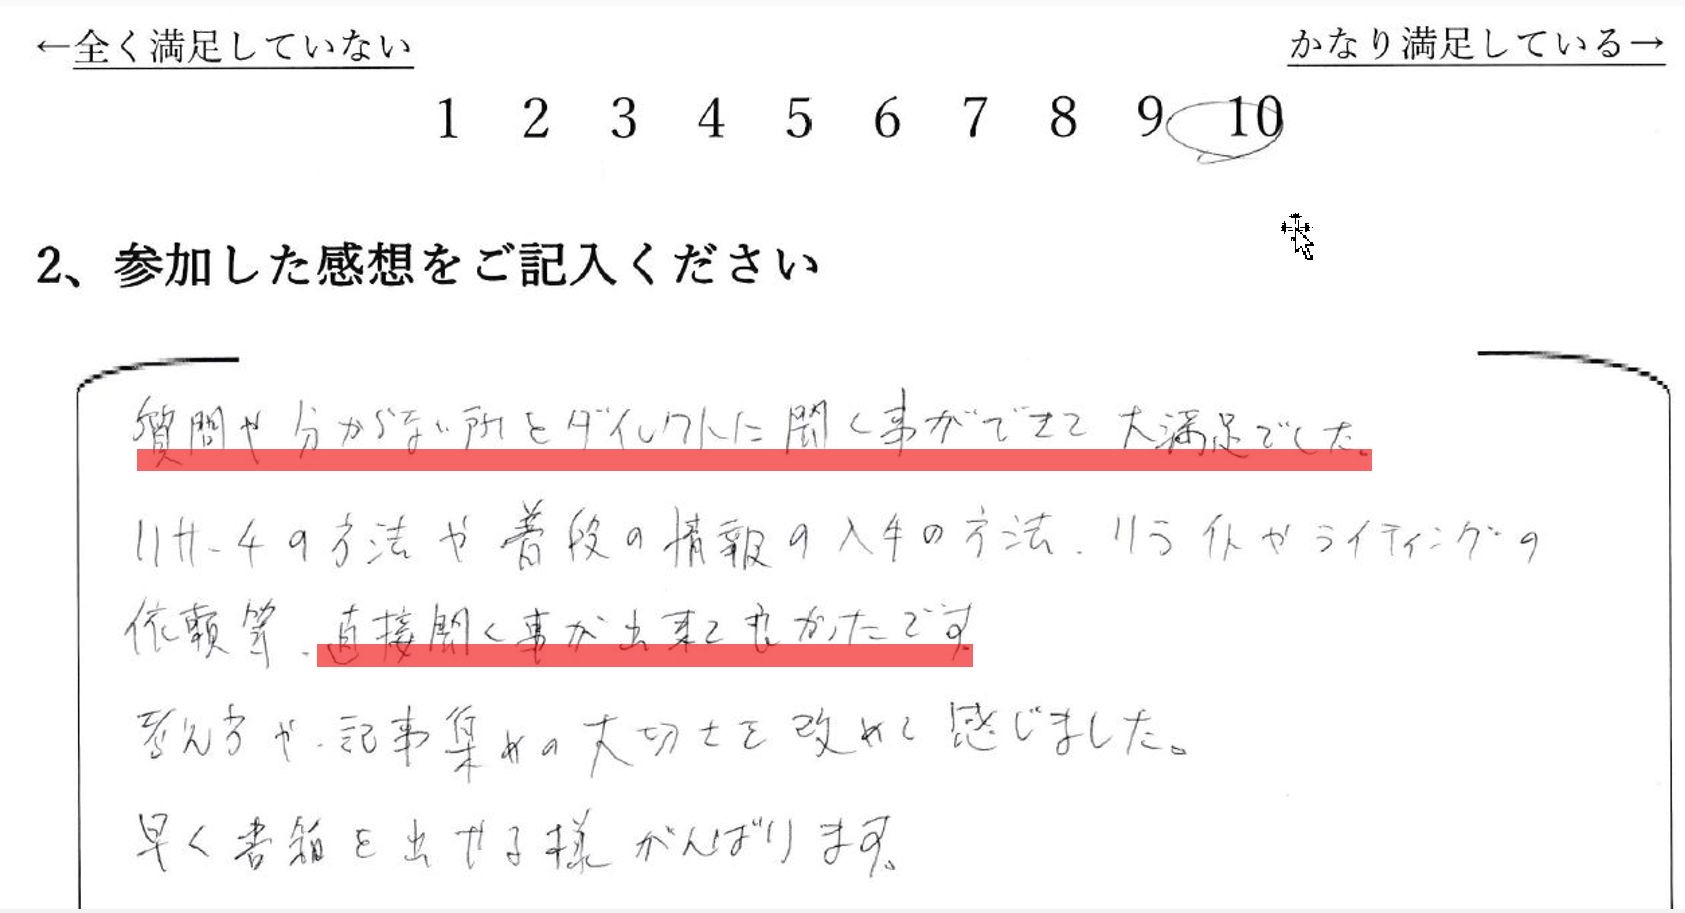 ←全く満足していない かなり満足している→
1 2 3 4 5 6 7 8 9 10
2、参加した感想をご記入ください
質問や分からない所をダイレクトに聞く事ができて大満足でした。
リサーチの方法や普段の情報の入手の方法、リライトやライティングの
依頼等、直接聞く事が出来て良かったです。
考え方や、記事集めの大切さを改めて感じました。
早く書籍を出せる様がんばります。